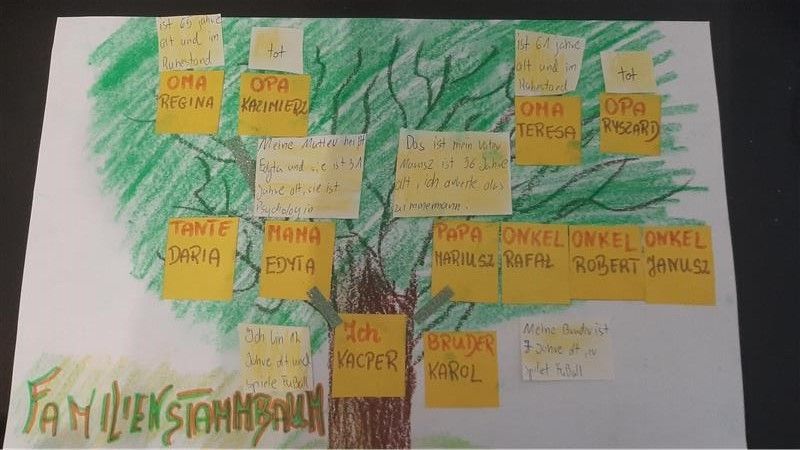 ist 65 Jahre
alt und im
Ruhestand
tot
OMA
REGINA
OPA
KAZIMIERZ
ist 61 jahre
alt und im
Ruhestand
tot
OMA
TERESA
OPA
RYSZARD
Meine Mutter heißt
Edyta und sie ist 31
jahre alt, sie ist
Psychologin
Das ist mein Vater
Mariusz ist 36 Jahre
alt, ich als
zimmermann.
TANTE
DARIA
MAMA
EDYTA
PAPA
MARIUSZ
ONKEL
RAFAŁ
ONKEL
ROBERT
ONKEL
JANUSZ
Ich bin 12
Jahre alt und
spiele Fußball
Ich
KACPER
BRUDER
KAROL
Meine Bruder ist
7 Jahre alt, er
spilet Fußball
FAMILIENSTAMMBAUM